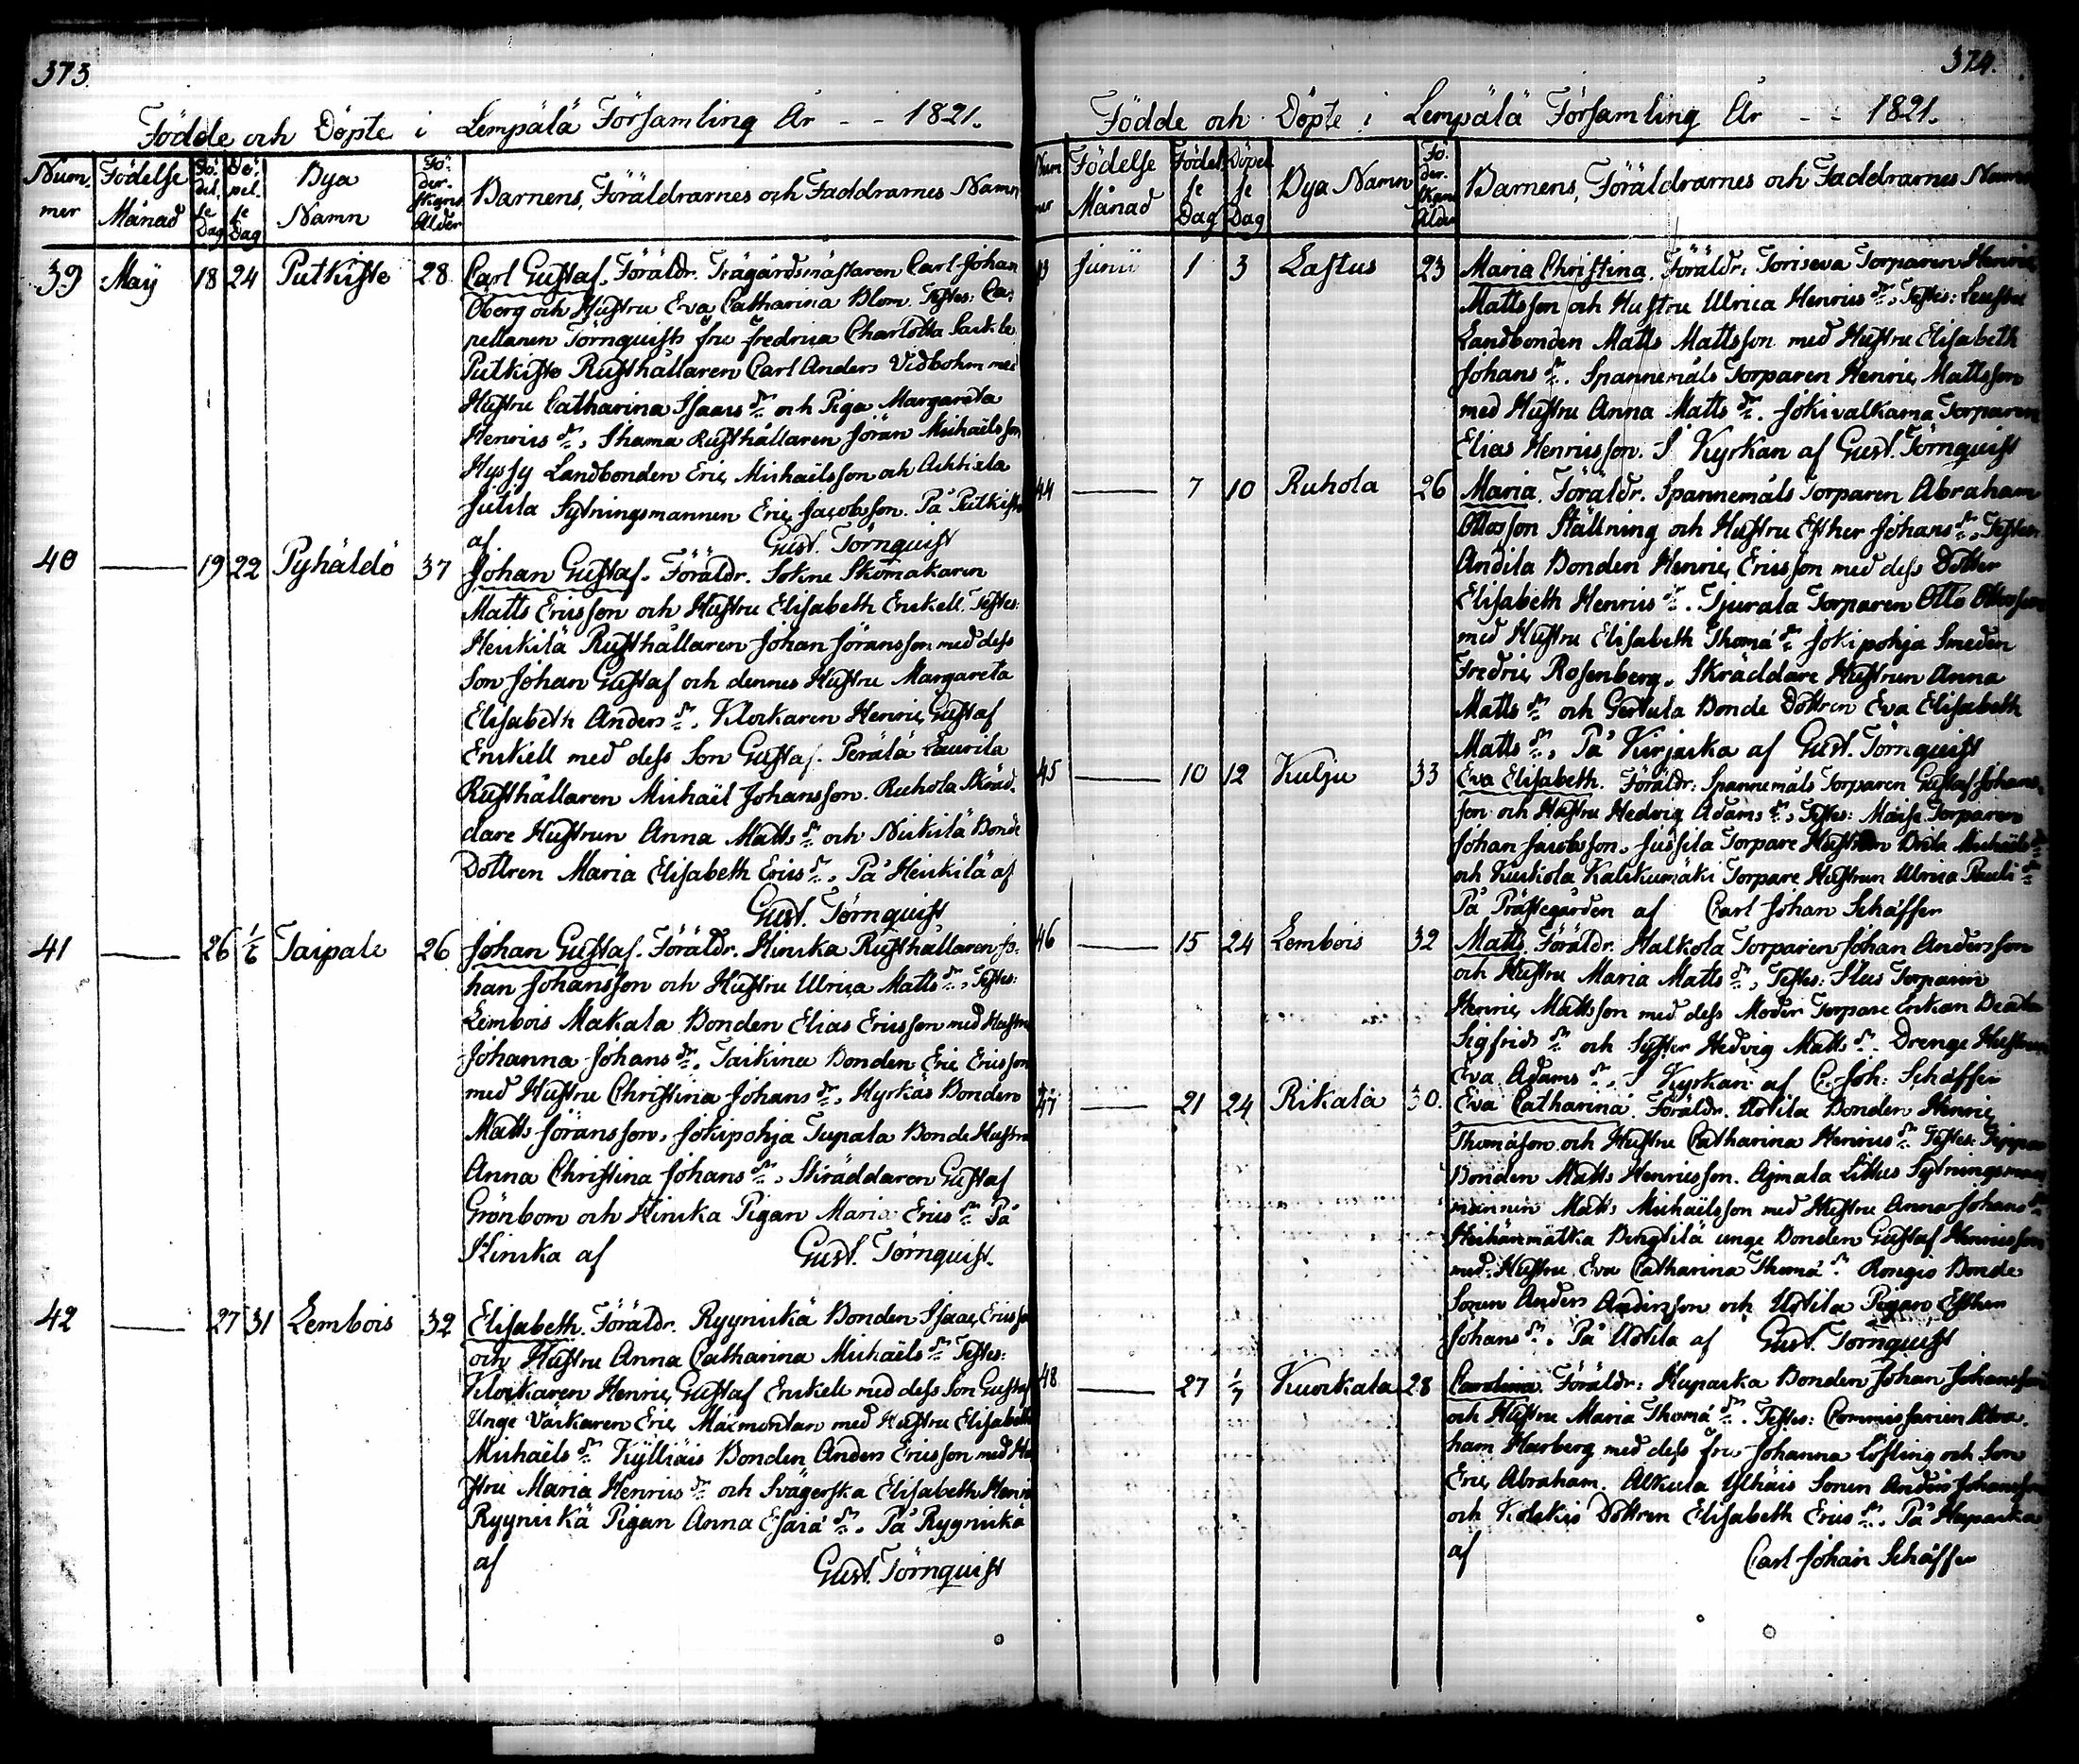 373.
Födde och Döpte i Lempälä Församling År - - 1821.
Num- Födelse Fö- Dö- Bya Fö- Barnens, Föräldrarnes och Faddrarnes Namn
mer Månad del- pel- Namn der-
se se skans
Dag Dag Ålder
39 Maÿ 18 24 Putkisto 28 Carl Gustaf. Föräldr. Trägårdsmästaren Carl Johan
Öberg och Hustru Eva Catharina Blom. Testes: Ca-
pellanen Törnquists fru Fredrica Charlotta
Putkisto Rusthållaren Carl Anders Vidbohm med
Hustru Catharina Isaacs dr. och Piga Margareta
Henrics dr., Rusthållaren Jöran Michaëlsson
Hyssy Landbonden Eric Michaëlsson och Ahtiala
Julila Sytningsmannen Eric Jacobsson. På Putkisto
af Gust. Törnquist
40 — 19 22 Pyhäldö 37 Johan Gustaf. Föräldr. Sokne Skomakaren
Matts Ericsson och Hustru Elisabeth Enckell. Testes:
Heickilä Rusthållaren Johan Jöransson med dess
Son Johan Gustaf och dennes Hustru Margareta
Elisabeth Anders dr. Klockaren Henric Gustaf
Enckell med dess Son Gustaf. Perälä Laurila
Rusthållaren Michaël Johansson. Ruhola Skräd-
dare Hustrun Anna Matts dr. och Nickilä Bonde
Dottren Maria Elisabeth Erics dr. På Heickilä af
Gust. Törnquist
41 — 26 1/6 Taipale 26 Johan Gustaf. Föräldr. Hincka Rusthållaren Jo-
han Johansson och Hustru Ulrica Matts dr. Testes:
Lembois Makala Bonden Elias Ericsson med Hustru
Johanna Johans dr. Taikina Bonden Eric Ericsson
med Hustru Christina Johans dr. Hyrkäs Bonden
Matts Jöransson, Jokipohja Tupala Bonde Hustru
Anna Christina Johans dr. Skräddaren Gustaf
Grönbom och Hincka Pigan Maria Erics dr. På
Hincka af Gust. Törnquist.
42 — 27 31 Lembois 32 Elisabeth. Föräldr. Ryynickä Bonden Isaac Ericsson
och Hustru Anna Catharina Michaëls dr. Testes:
Klockaren Henric Gustaf Enckell med dess Son Gustaf
Unge Eric med Hustru Elisabeth
Michaëls dr. Kylliäis Bonden Anders Ericsson med Hu-
stru Maria Henrics dr. och Svägerska Elisabeth Henrics
Ryynickä Pigan Anna Esaiæ dr. På Ryynickä
af Gust. Törnquist
374.
Födde och Döpte i Lempälä Församling År - - 1821.
Num Födelse Födel Döpel Bya Namn Fö- Barnens, Föräldrarnes och Faddrarnes Namn
mer Månad se se der-
Dag Dag skans
Ålder
43 Junii 1 3 Lastus 23 Maria Christina. Föräldr: Toriseva Torparen Henric
Mattsson och Hustru Ulrica Henrics dr. Testes:
Landbonden Matts Mattsson med Hustru Elisabeth
Johans dr. Spannemåls Torparen Henric Mattsson
med Hustru Anna Matts dr. Jokivalkama Torparen
Elias Henricsson. I Kyrkan af Gust. Törnquist
44 — 7 10 Ruhola 26 Maria. Föräldr. Spannemåls Torparen Abraham
Ottosson Ställning och Hustru Esther Johans dr. Testes:
Andila Bonden Henric Ericsson med dess Dotter
Elisabeth Henrics dr. Tjurala Torparen Otto Ottosson
med Hustru Elisabeth Thomæ dr. Jokipohja Smeden
Fredric Rosenberg, Skräddare Hustrun Anna
Matts dr. och Gertula Bonde Dottren Eva Elisabeth
Matts dr. På Kirjaska af Gust. Törnquist
45 — 10 12 Kulju 33 Eva Elisabeth. Föräldr: Spannemåls Torparen Gustaf Johans-
son och Hustru Hedvig Adams dr. Testes: Moise Torparen
Johan Jacobsson, Jussila Torpare Hustrun Brita Michaëls dr.
och Kuckola Kalckumäki Torpare Hustrun Ulrica Pauli dr.
På Prästegården af Carl Johan Schäffer
46 — 15 24 Lembois 32 Matts. Föräldr. Halkola Torparen Johan Andersson
och Hustru Maria Matts dr. Testes: Torparen
Henric Mattsson med dess Moder Torpare Enkan Beata
Sigfrids dr. och Syster Hedvig Matts dr. Drenge Hustrun
Eva Adams dr. I Kyrkan af C. Joh: Schäffer
47 — 21 24 Rikala 30. Eva Catharina. Föräldr. Uotila Bonden Henric
Thomasson och Hustru Catharina Henrics dr. Testes:
Bonden Matts Henricsson. Ajmala Sytnings
mannen Matts Michaëlsson med Hustru Anna Johans dr.
Bengtilä unge Bonden Gustaf Henricsson
med Hustru Eva Catharina Thomæ dr. Bonde
Sonen Anders Andersson och Uotila Pigan Esther
Johans dr. På Uotila af Gust. Törnquist
48 — 27 1/7 Kuockala 28 Carolina. Föräldr: Huparka Bonden Johan Johansson
och Hustru Maria Thomæ dr. Testes: Commissarien Abra-
ham Harberg med dess fru Johanna Löfling och Son
Eric Abraham. Alkula Sonen Anders Johansson
och Dottren Elisabeth Erics dr. På Huparka
af Carl Johan Schäffer